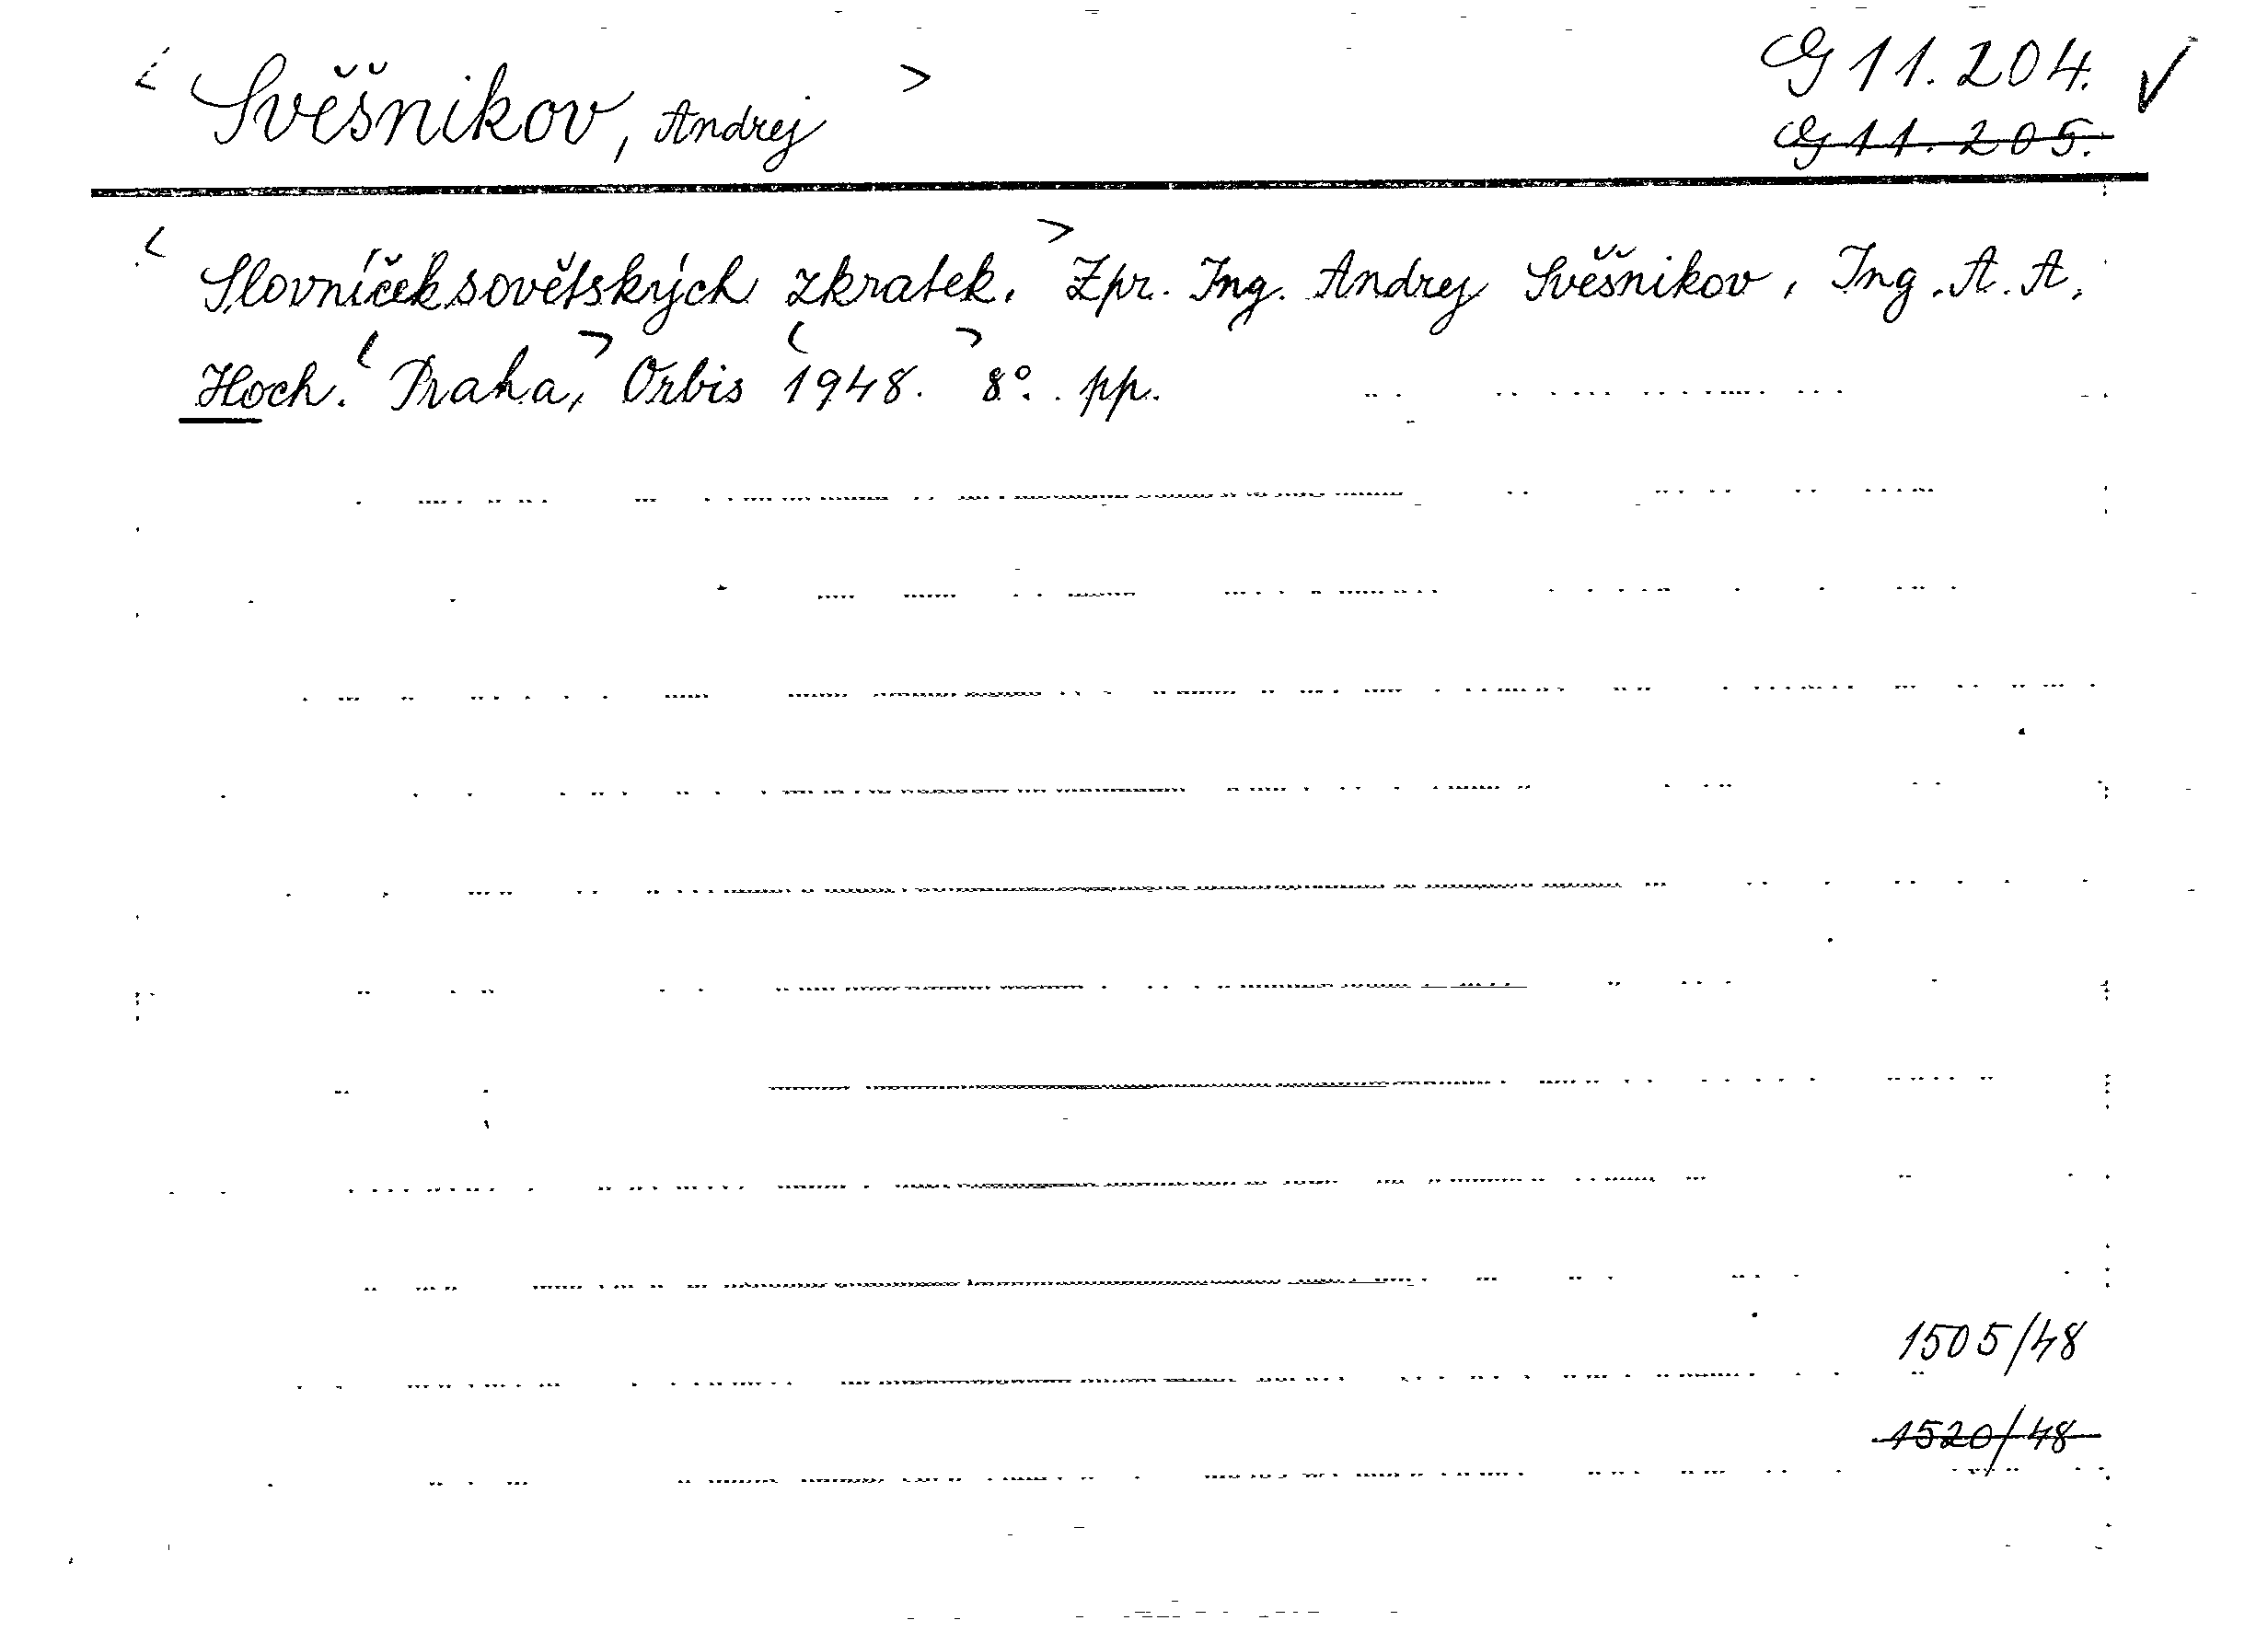 < Svěšnikov, Andrej > G 11.204. ✓
G 11.205.
< Slovníček sovětských zkratek. > Zpr. Ing. Andrej Svěšnikov, Ing. A. A.
Hoch. < Praha, > Orbis < 1948. > 8°. pp.
1505/48
1520/48